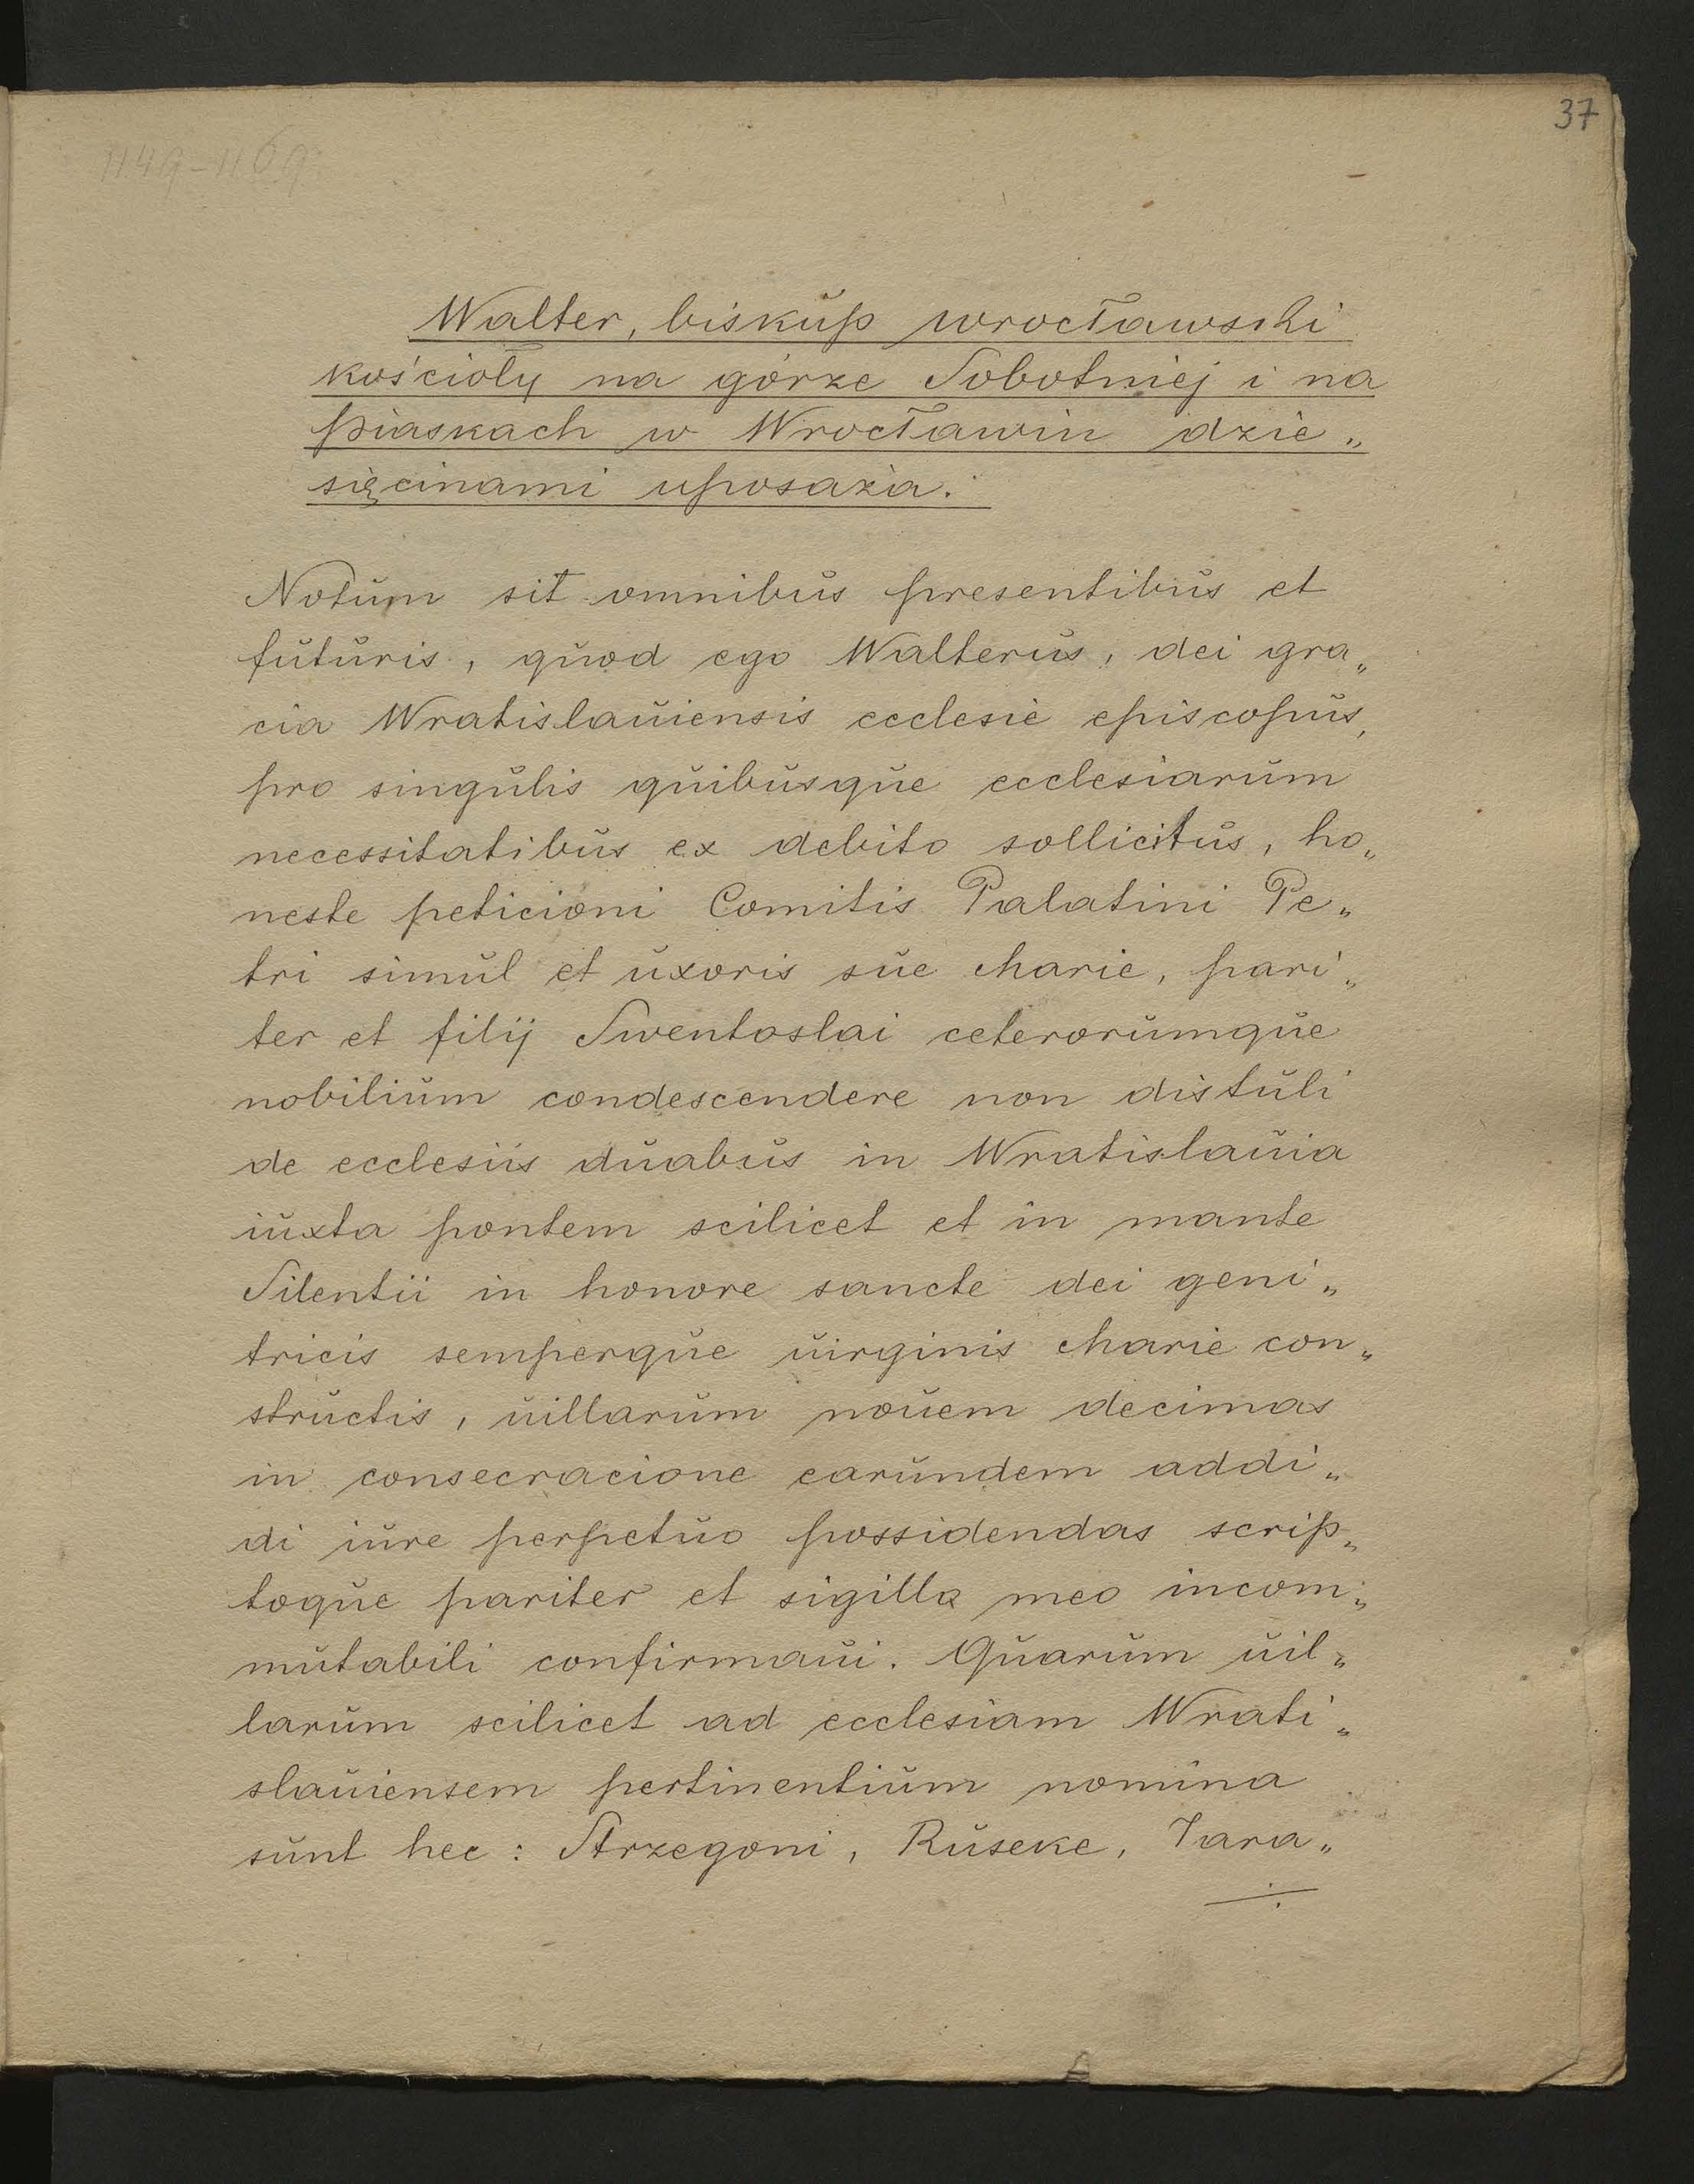 37
1149-1169
Walter, biskup wrocławski
kościoły na górze Sobotniej i na
piaskach w Wrocławiu dzie„
sięcinami uposaża.
Notum sit omnibus presentibus et
futuris, quod ego Walterus, dei gra„
cia Wratislauiensis ecclesie episcopus,
pro singulis quibusque ecclesiarum
necessitatibus ex debito sollicitus, ho„
neste peticioni Comitis Palatini Pe„
tri simul et uxoris sue Marie, pari„
ter et filij Swentoslai ceterorumque
nobilium condescendere non distuli
de ecclesiis duabus in Wratislauia
iuxta pontem scilicet et in monte
Silentii in honore sancte dei geni„
tricis semperque uirginis Marie con„
structis, uillarum nouem decimas
in consecracione earundem addi„
di iure perpetuo possidendas scrip„
toque pariter et sigillo meo incom„
mutabili confirmaui. Quarum uil„
larum scilicet ad ecclesiam Wrati„
slauiensem pertinentium nomina
sunt hec: Strzegoni, Ruseke, Tara„